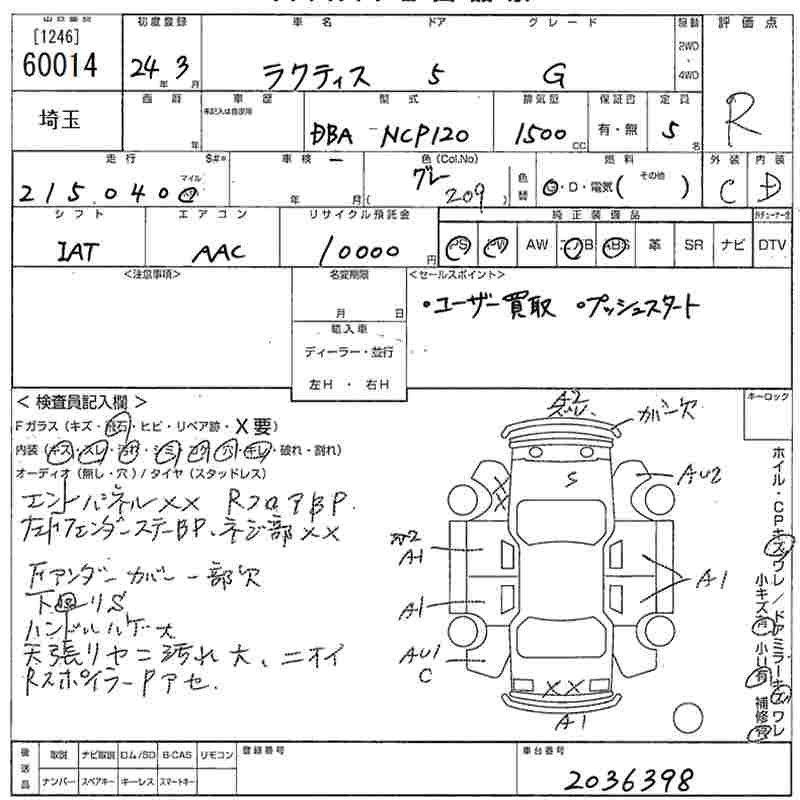 [1246]
60014
初度登録
24年 3月
車名
ラクティス
ドア
5
グレード
G
駆動
2WD
・
4WD
評価点
R
埼玉
車歴
未記入は自家用
年
型式
DBA - NCP120
排気量
1500 CC
保証書
有・無
定員
5名
走行
215,040
マイル
$#*
車検
年 月
色(Col.No)
グレー
( 209 )
色替
燃料
G・D・電気( その他 )
外装
C
内装
D
シフト
IAT
エアコン
AAC
リサイクル預託金
10000円
純正装備品
PS
PW
AW
ABS
革
SR
ナビ
DTV
<注意事項>
名変期限
月 日
輸入車
ディーラー・並行
左H ・ 右H
<セールスポイント>
・ユーザー買取 ・プッシュスタート
キーロック
<検査員記入欄>
Fガラス(キズ・飛石・ヒビ・リペア跡・X要)
内装(キズ・スレ・汚れ・シミ・コゲ・穴・キレ・破れ・割れ)
オーディオ(無し・穴)/タイヤ(スタッドレス)
エンドパネルXX RフロアBP.
左Fフェンダーステー BP、ネジ部XX
Fアンダーカバー一部欠
下回りS
天張りヤニ汚れ大、ニオイ
RスポイラーPアセ.
A2
ズレ
カバー欠
XX
S
AU2
A1
A1
A1
AU1
C
XX
A1
ホイル・CPキズワレ/ドアミラーキズワレ
小キズ有 小U有 補修有
後送品
取説
ナビ取説
ロム/SD
B-CAS
リモコン
ナンバー
スペアキー
キーレス
スマートキー
登録番号
車台番号
2036398